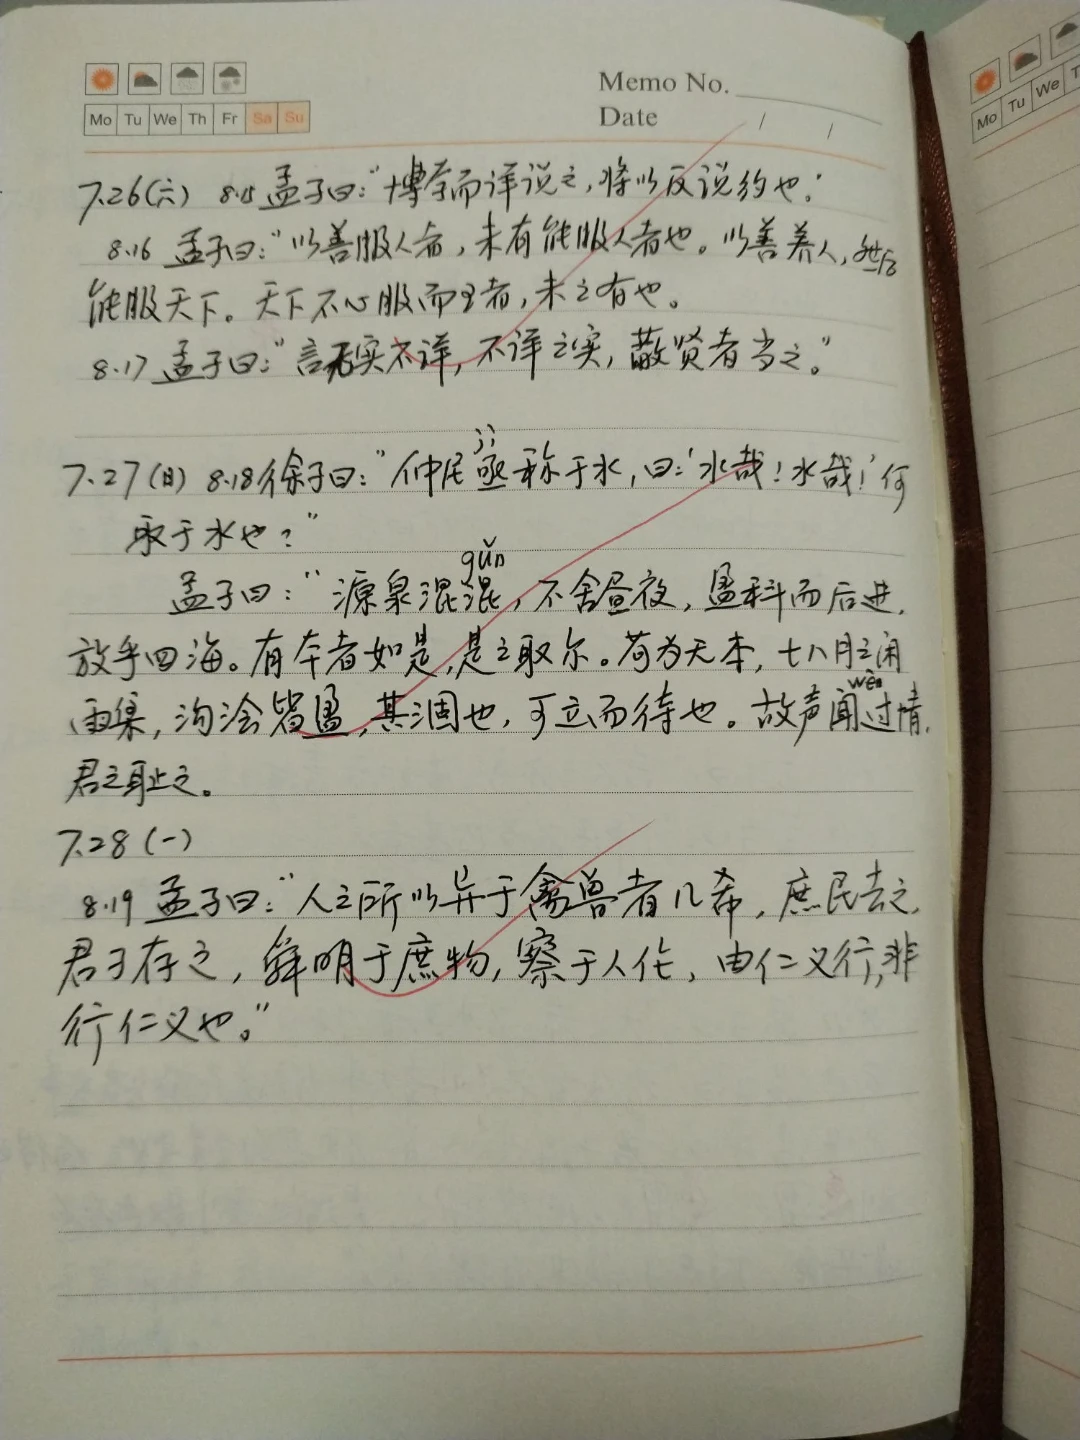 Memo No.
Mo Tu We Th Fr Sa Su
Date / /
7.26(六) 8.15 孟子曰:“博学而详说之,将以反说约也.”
8.16 孟子曰:“以善服人者,未有能服人者也。以善养人,然后
能服天下。天下不心服而王者,未之有也。
8.17 孟子曰:“言无实不详,不详之实,蔽贤者当之。”
jí
7.27(日) 8.18徐子曰:“仲尼亟称于水,曰:‘水哉!水哉!’何
取于水也?”
gǔn
孟子曰:“源泉混混,不舍昼夜,盈科而后进,
放乎四海。有本者如是,是之取尔。苟为无本,七八月之间
wèn
雨集,沟浍皆盈,其涸也,可立而待也。故声闻过情,
君之耻之。
7.28(一)
8.19 孟子曰:“人之所以异于禽兽者几希,庶民去之,
君子存之,舜明于庶物,察于人伦,由仁义行,非
行仁义也。”
Mo Tu We T